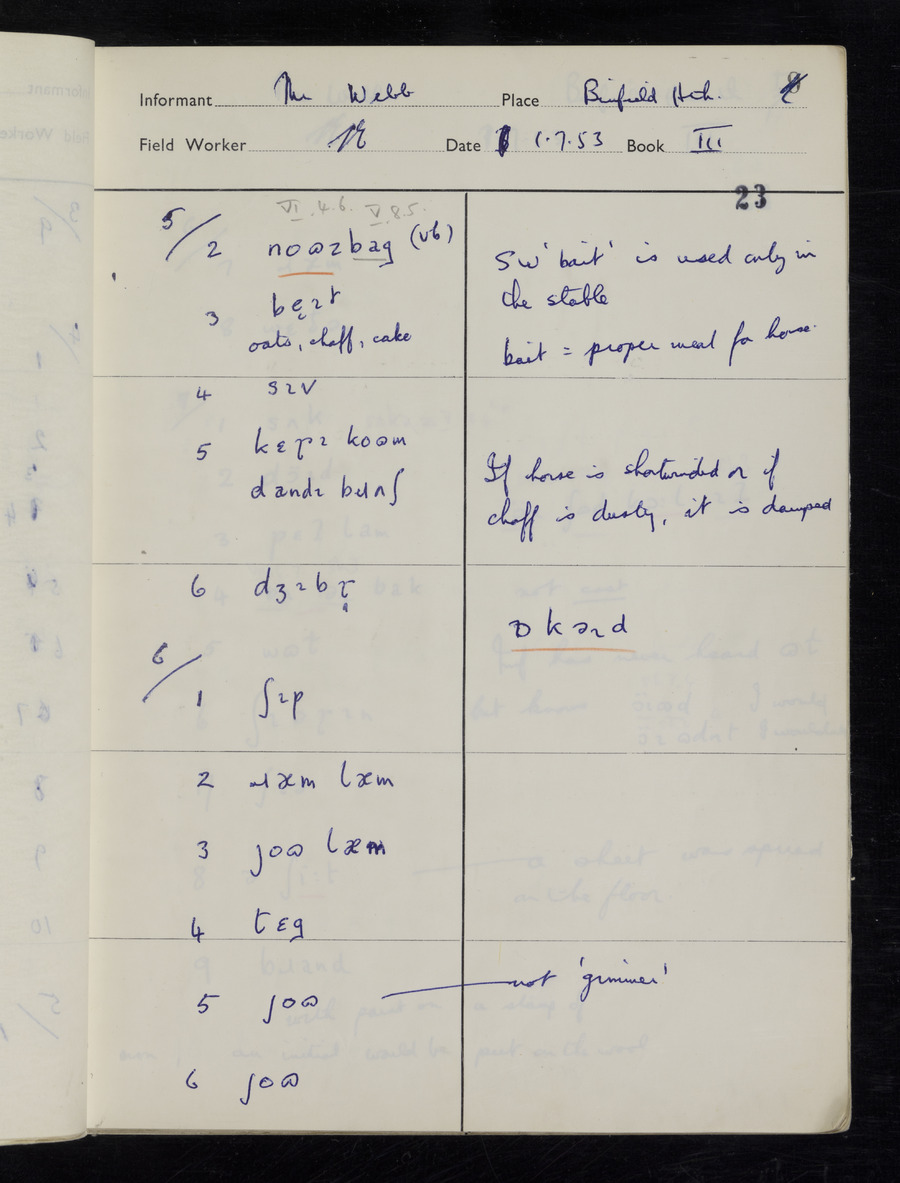 Informant Mr Webb Place Binfield Hth.
Field Worker Date 1.7.53 Book III
23
VI.4.6. V.8.5.
5/2 noᴔzbag (vb)
SW 'bait' is used only in
the stable
3 beɪt
oats, chaff, cake
bait = proper meal for horse.
4 sɪv
5 kɛɽɪ koᴔm
dandɪ bɹʌʃ
If horse is shortwinded or if
chaff is dusty, it is damped
6 dʒɪbɽ
ɒkəɹd
6/1 ʃɪp
2 ɹæm læm
3 joᴔ læm
4 tɛg
5 joᴔ not 'gimmer'
6 joᴔ